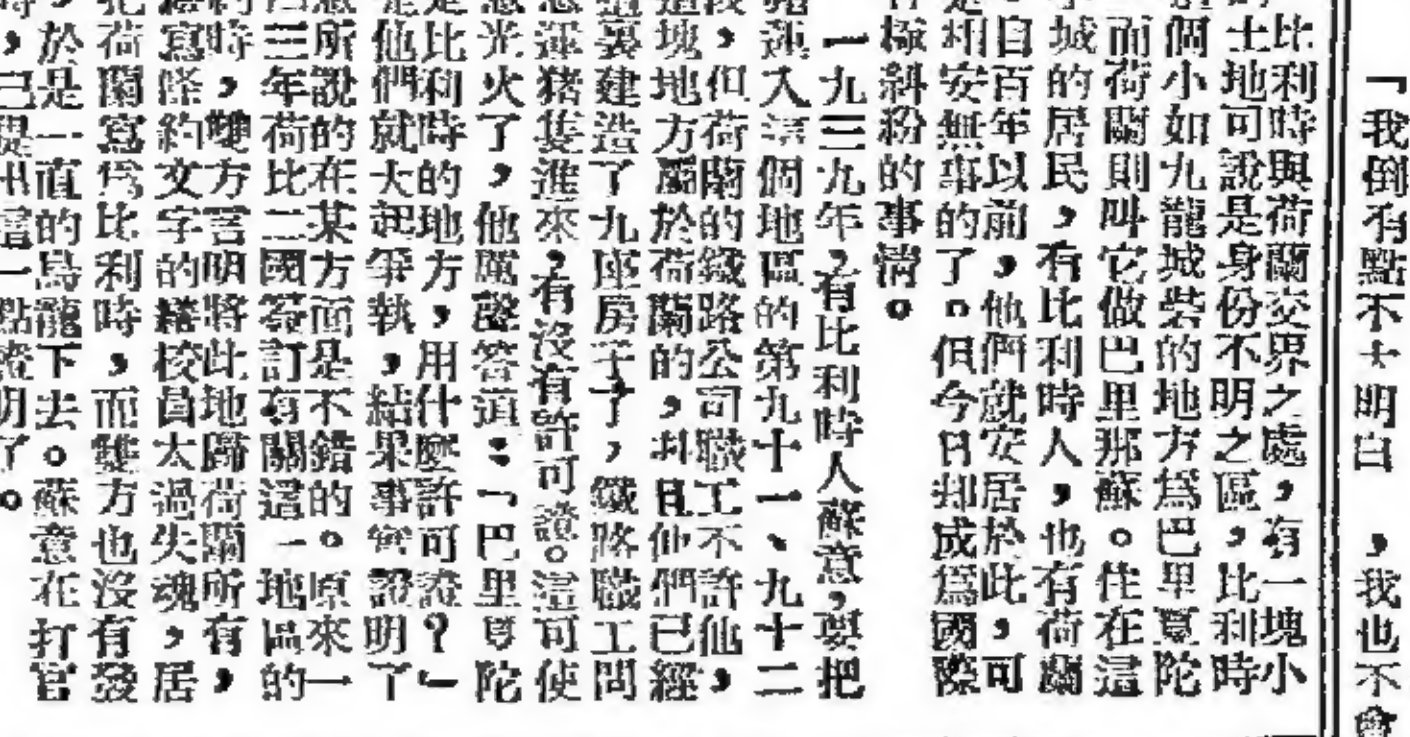 「我倒有點不大明白，我也不會
比利時與荷蘭交界之處，有一塊小
土地可說是身份不明之區，比利時
個小如九龍城砦的地方為巴里夏陀
而荷蘭則叫它做巴里那蘇。住在這
城的居民，有比利時人，也有荷蘭
自百年以前，他們就安居於此，可
相安無事的了。但今日却成為國際
糾紛的事情。
一九三九年，有比利時人蘇意，要把
運入這個地區的第九十一、九十二
，但荷蘭的鐵路公司職工不許他，
塊地方屬於荷蘭的，並且他們已經
建造了九座房子了，鐵路職工問
運猪隻進來，有沒有許可證。這可使
光火了，他厲聲答道：「巴里夏陀
是比利時的地方，用什麼許可證？」
他們就大起爭執，結果事實證明了
所說的在某方面是不錯的。原來一
三年荷比二國簽訂有關這一地區的
時，雙方言明將此地歸荷蘭所有，
寫條約文字的繕校員太過失魂，居
荷蘭寫為比利時，而雙方也沒有發
於是一直的烏龍下去。蘇意在打官
，已提出這一點證明了。